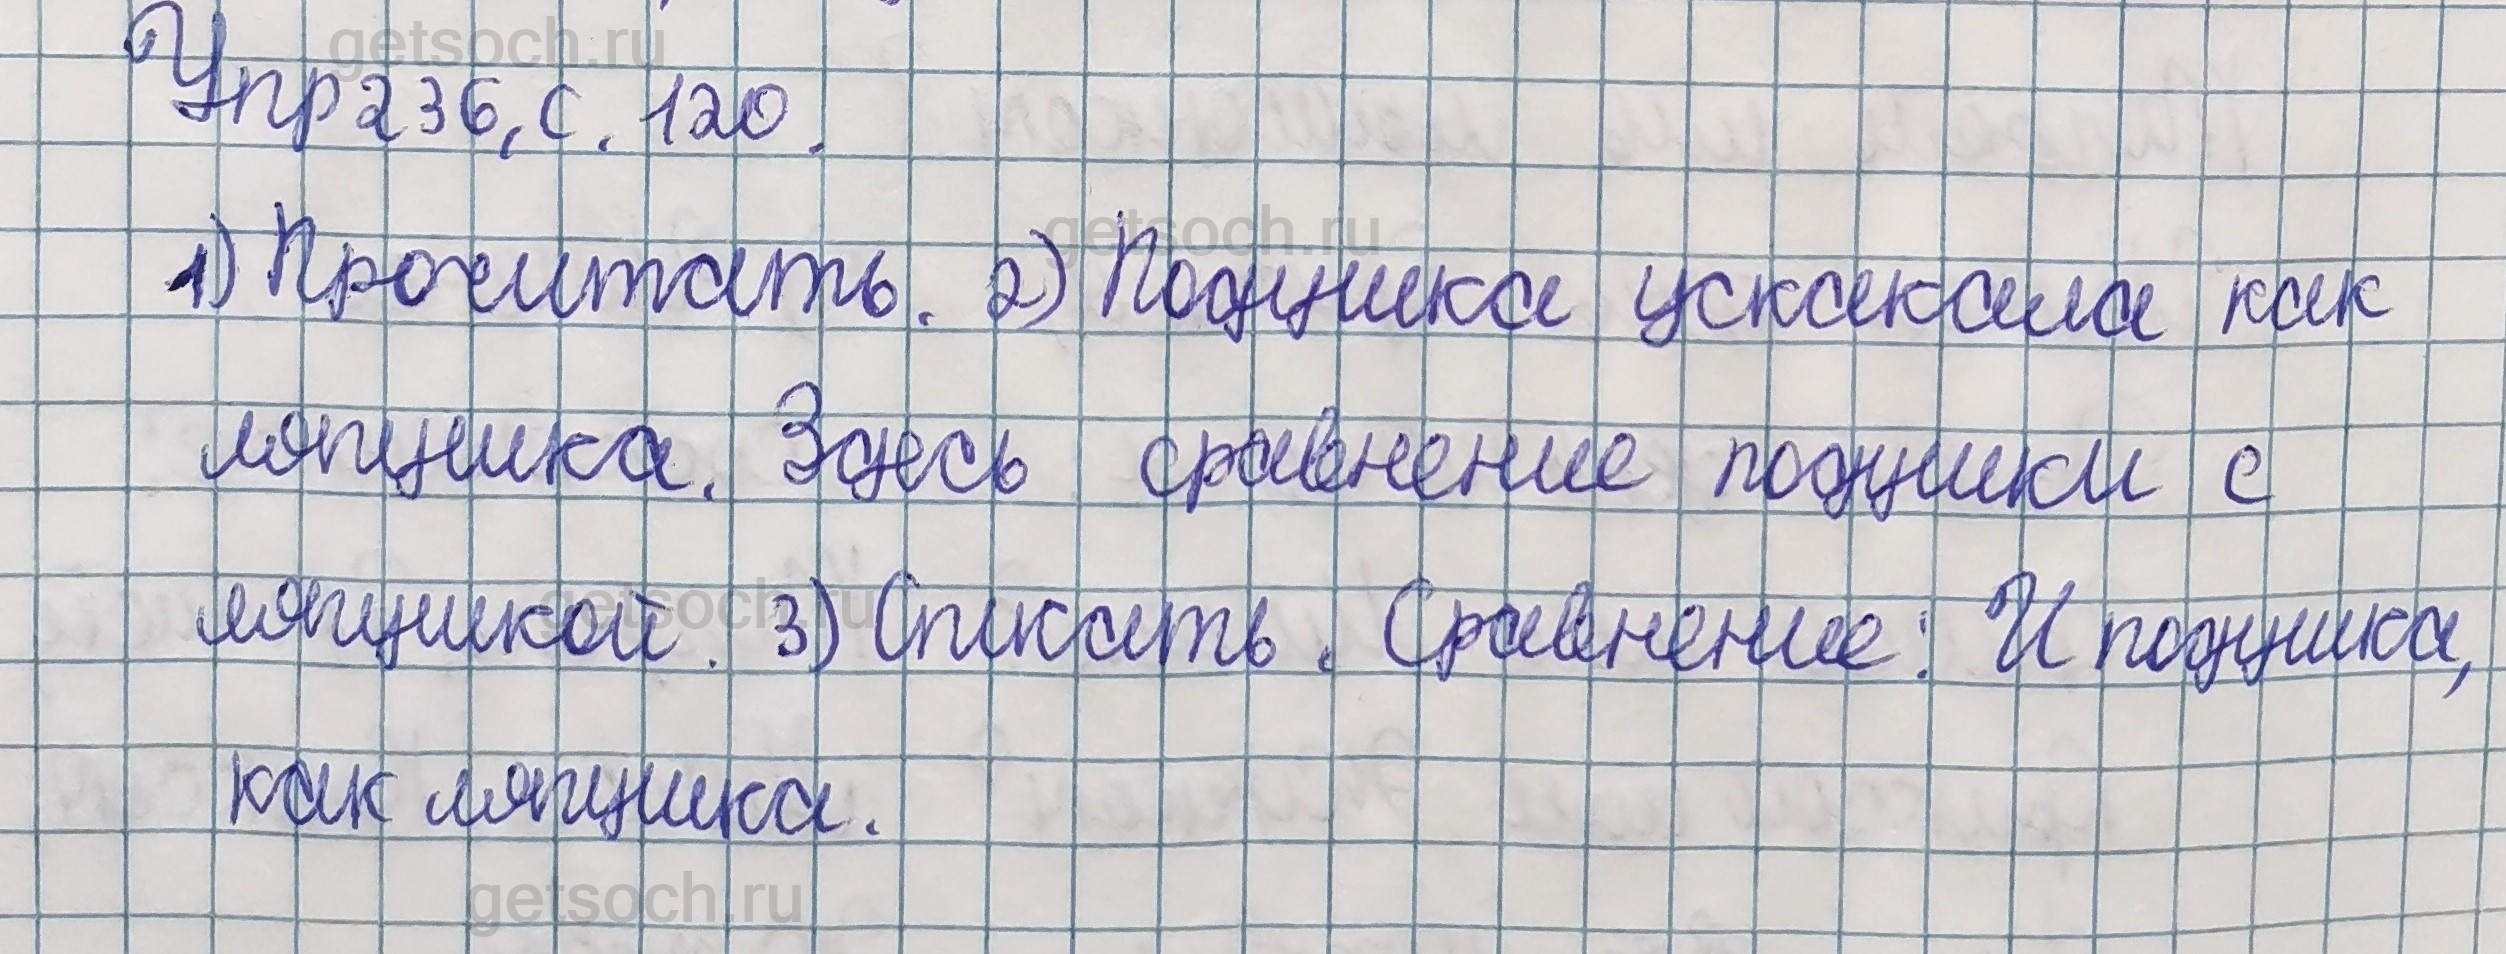 Упр 236, с. 120.
1) Прочитать. 2) Подушка ускакала как
лягушка. Здесь сравнение подушки с
лягушкой. 3) Списать. Сравнение: И подушка,
как лягушка.
getsoch.ru
getsoch.ru
getsoch.ru
getsoch.ru